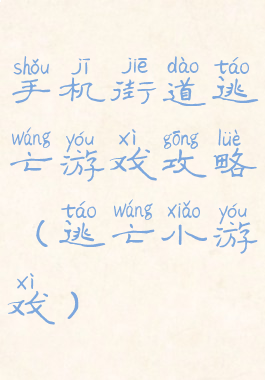 shǒu jī jiē dào táo
手机街道逃
wáng yóu xì gōng lüè
亡游戏攻略
táo wáng xiǎo yóu
（逃亡小游
xì
戏）